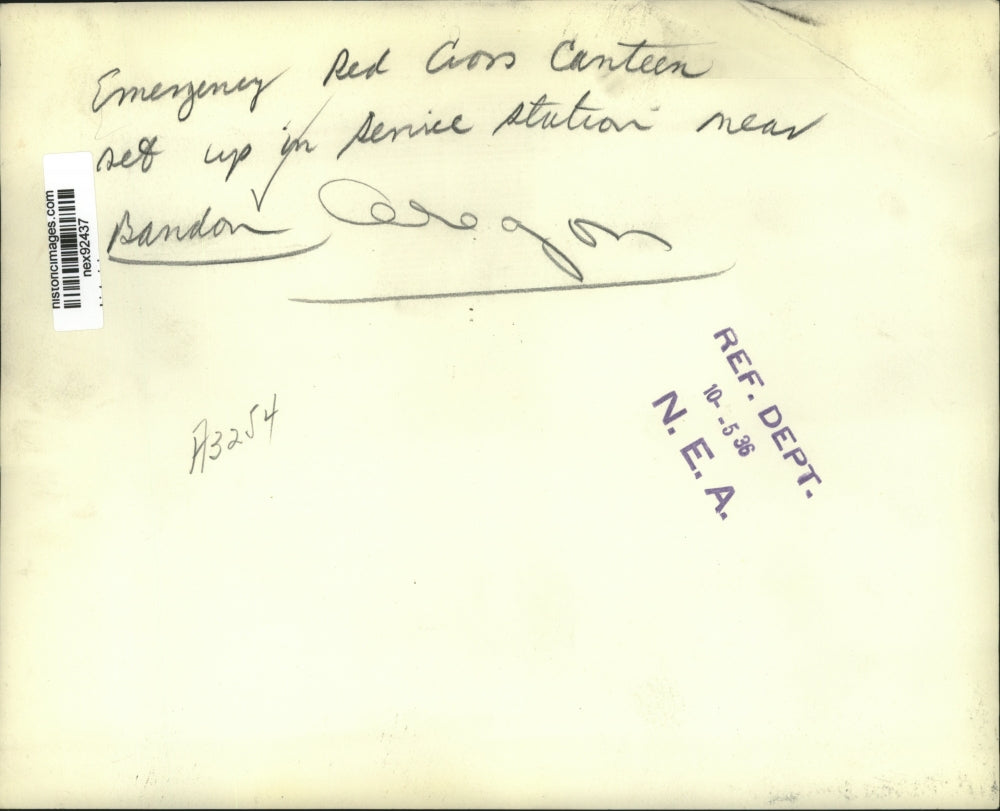 Emergency Red Cross Canteen
set up in service station near
Bandon Oregon
historicimages.com
nex92437
A3254
REF. DEPT.
10--5 36
N. E. A.